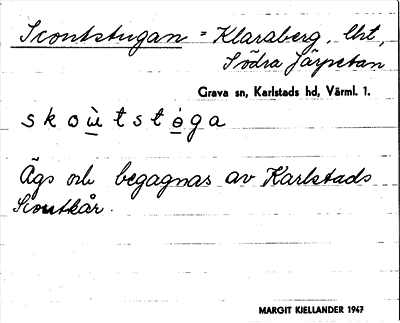 Scoutstugan = Klaraberg, lht,
Södra Järpetan
Grava sn, Karlstads hd, Värml. l.
s k o ù̲ t s t ė̲ g a
Ägs och begagnas av Karlstads
Scoutkår.
MARGIT KJELLANDER 1947